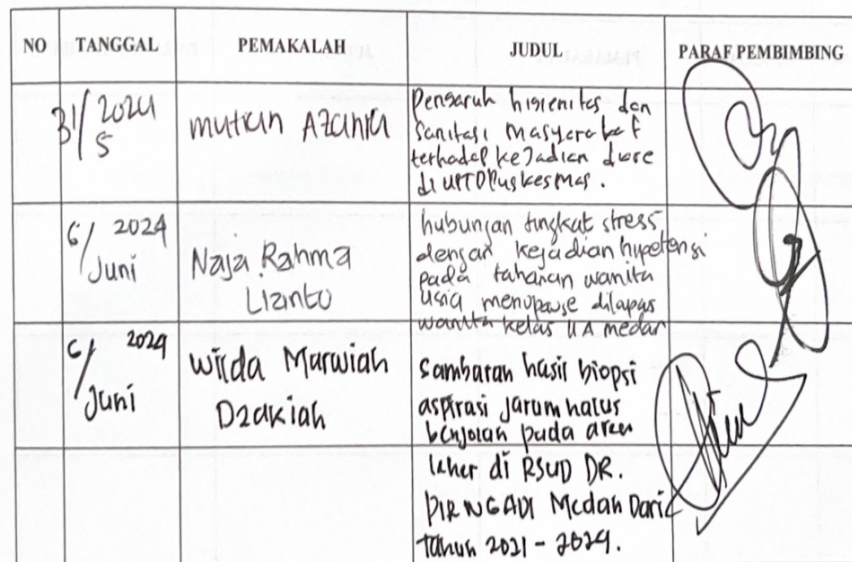 NO TANGGAL PEMAKALAH JUDUL PARAF PEMBIMBING
31/5 2024
mutian Azania
Pengaruh higienitas dan
Sanitasi masyarakat
terhadap kejadian diare
di UPTD Puskesmas.
6/ 2024
Juni
Naja Rahma
Lizanto
hubungan tingkat stress
dengan kejadian hipetensi
pada tahanan wanita
usia menopause dilapas
wanita kelas II A medan
6/ 2024
Juni
wilda Marwiah
Dzakiah
Gambaran hasil biopsi
aspirasi jarum halus
benjolan pada area
leher di RSUD DR.
PIRNGADI Medan Dari
Tahun 2021 - 2024.